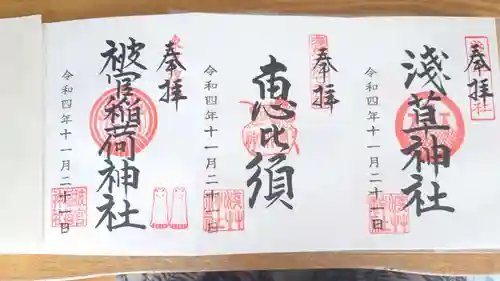 奉拝
浅草神社
令和四年十一月二十一日
奉拝
恵比須
令和四年十一月二十一日
奉拝
被官稲荷神社
令和四年十一月二十一日